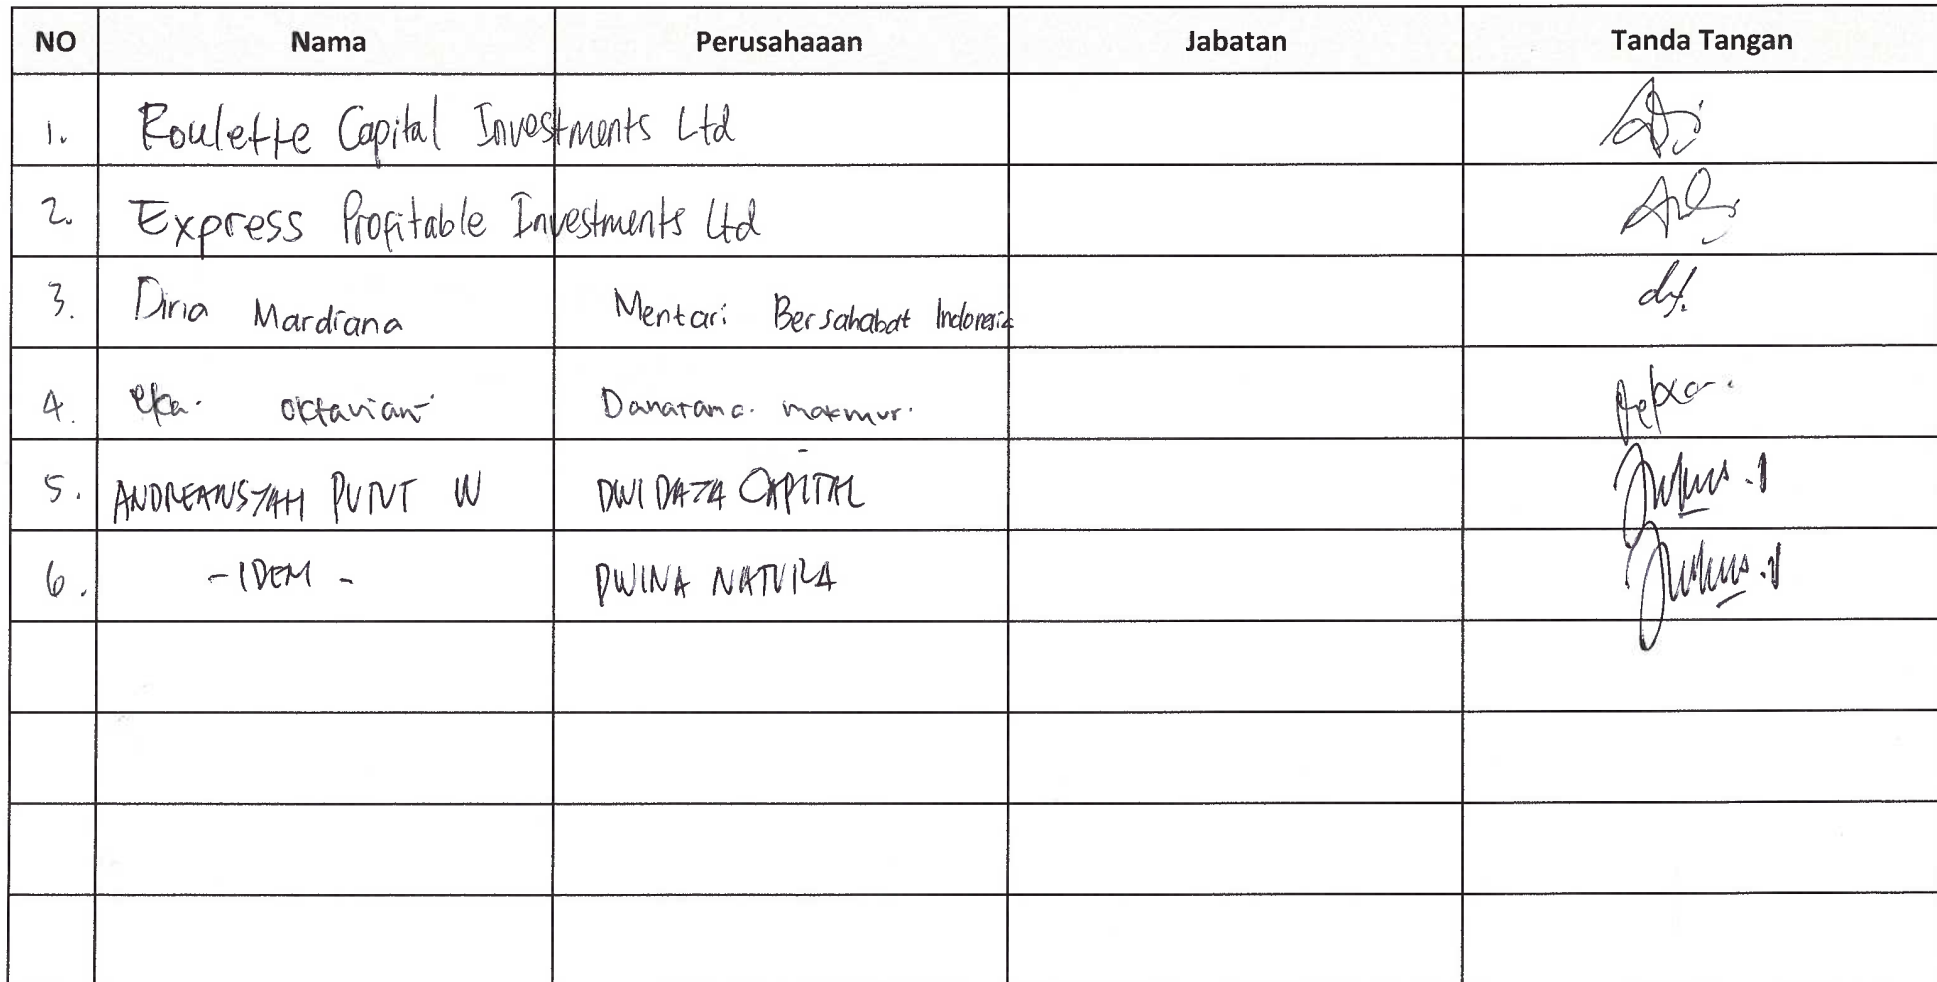 NO Nama Perusahaaan Jabatan Tanda Tangan
1. Roulette Capital Investments Ltd
2. Express Profitable Investments Ltd
3. Dina Mardiana Mentari Bersahabat Indonesia
4. eka. oktaviani Danatama. makmur.
5. ANDREANSYAH PUTRT W DWI DATA CAPITAL
6. - IDEM - DWINA NATURA